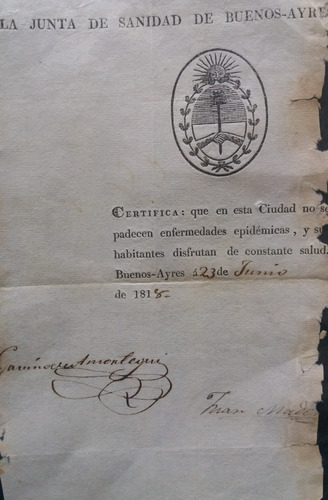 LA JUNTA DE SANIDAD DE BUENOS-AYRE
CERTIFICA: que en esta Ciudad no se
padecen enfermedades epidémicas, y su
habitantes disfrutan de constante salud.
Buenos-Ayres á 23 de Junio
de 1818
Juan